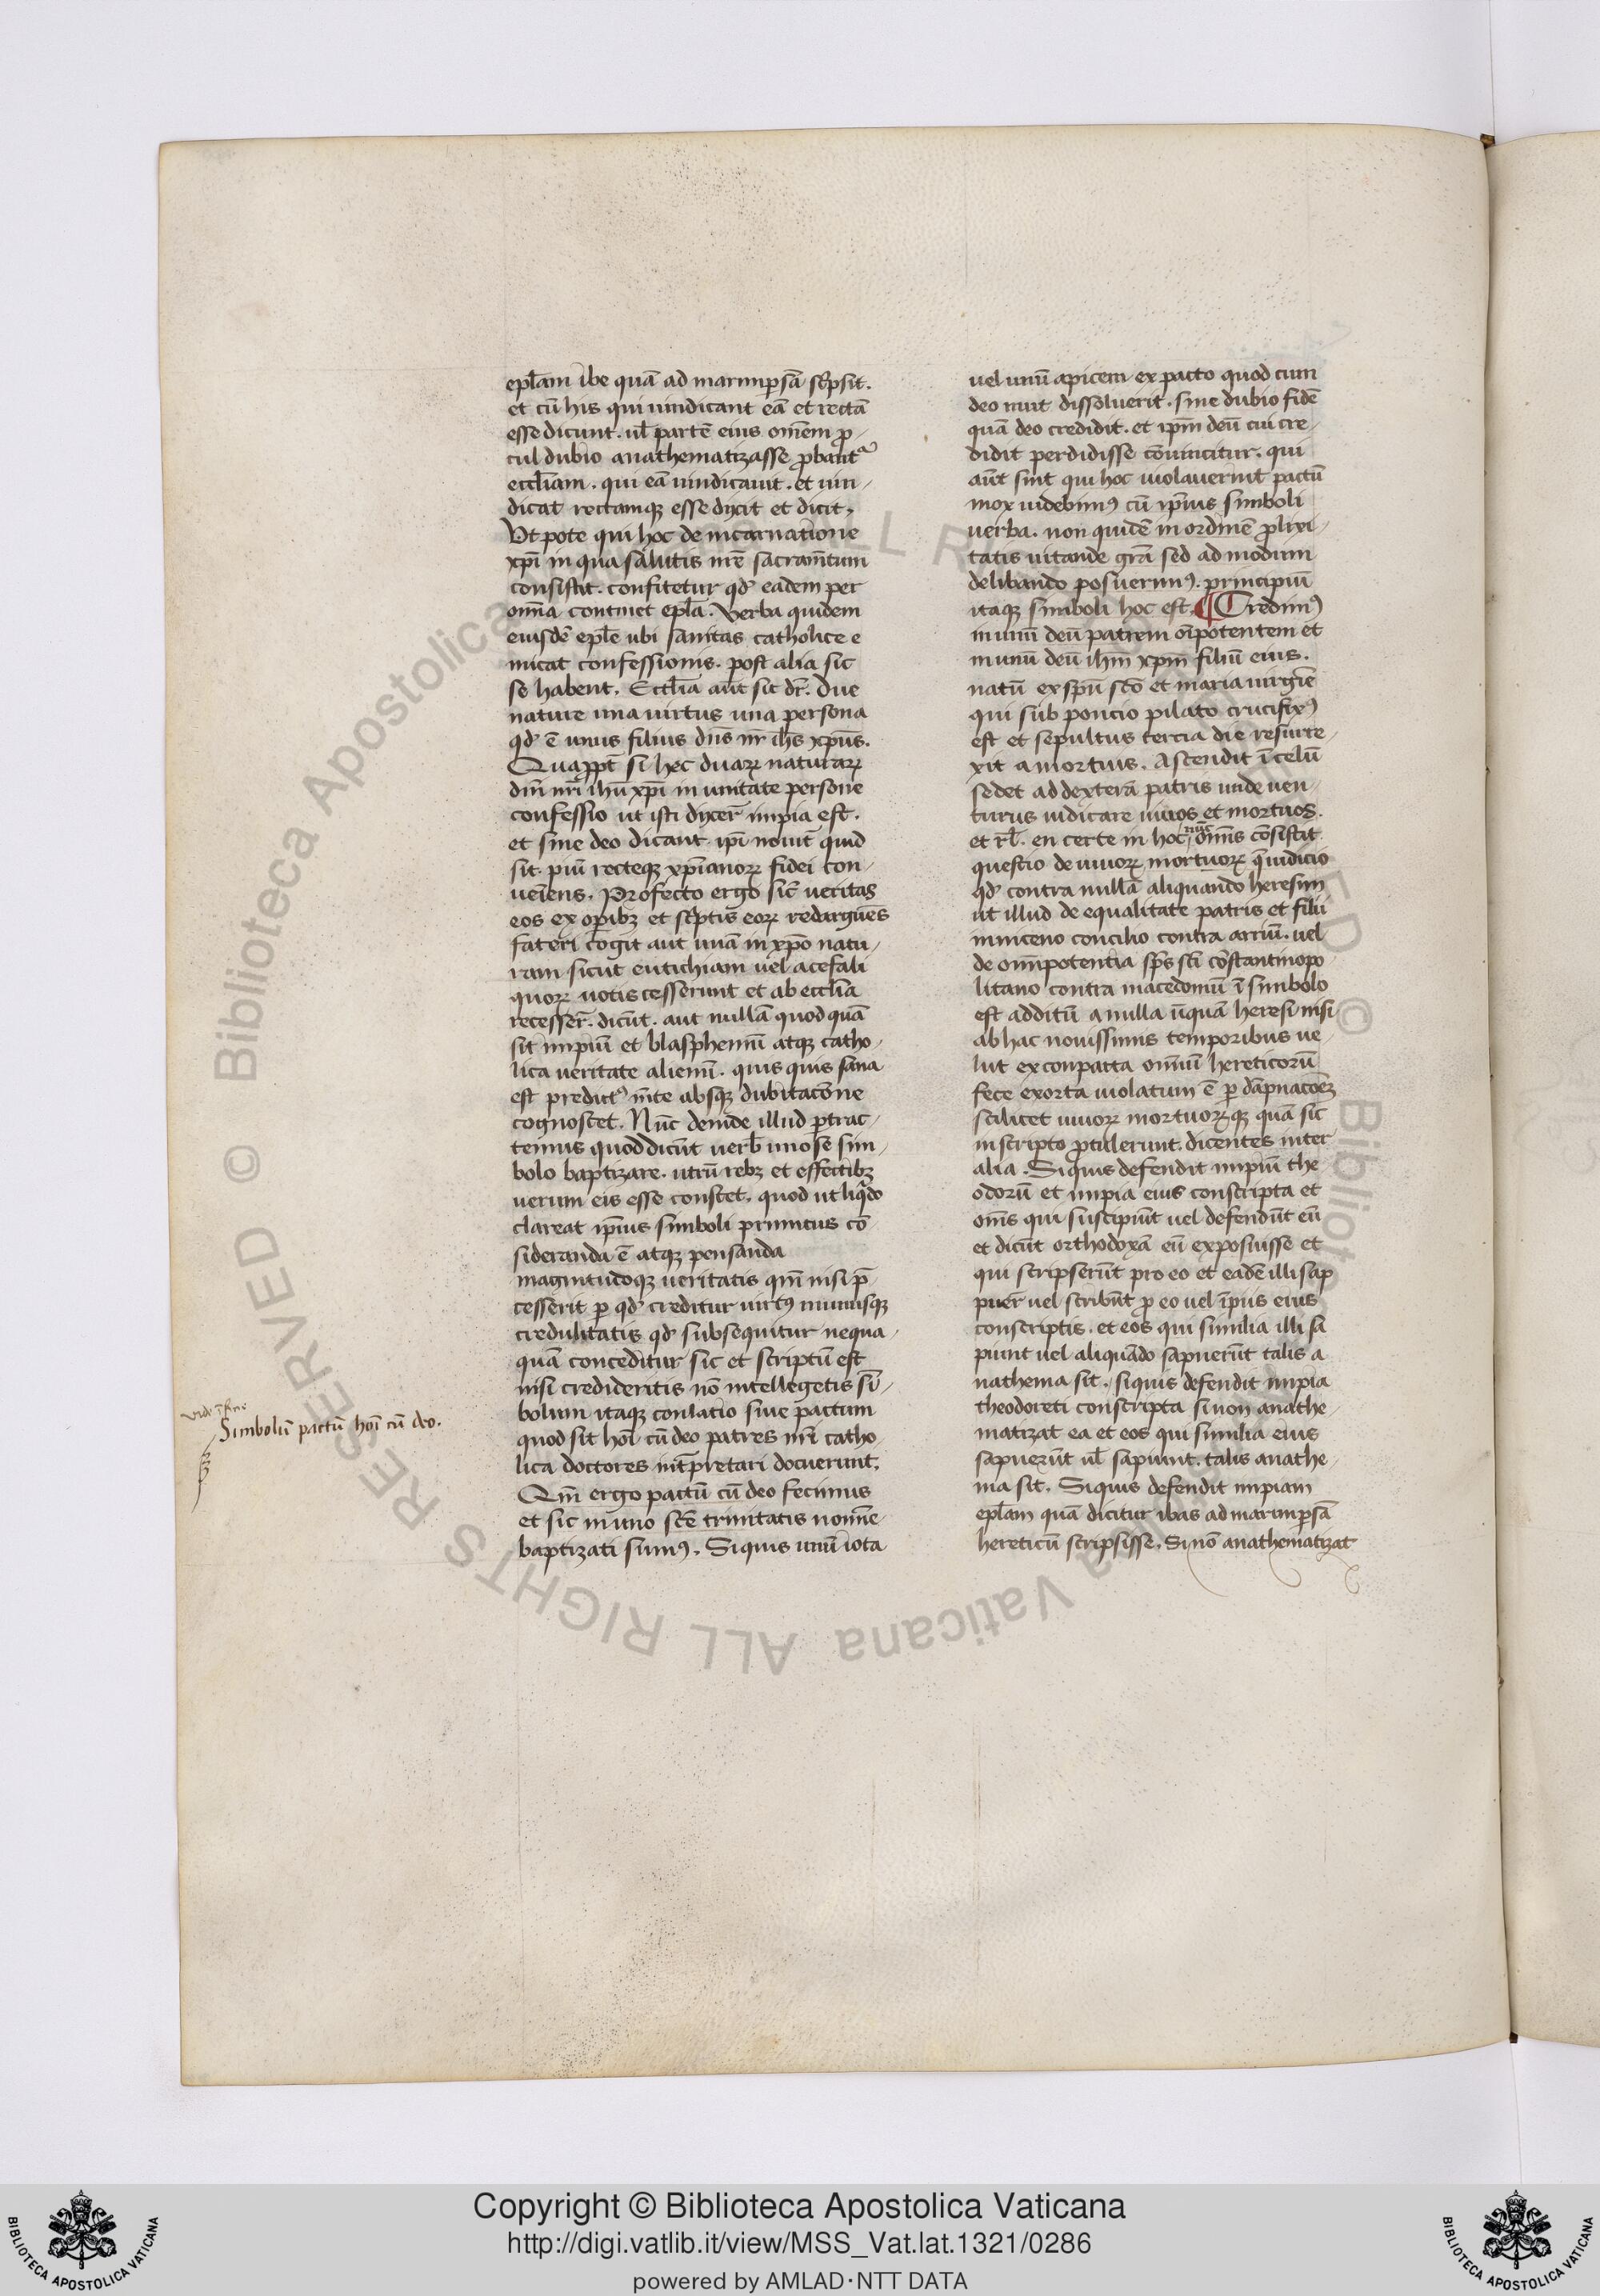 epl̄am ibe quā ad marimꝑsā sc̄psit.
et cū his qui uindicant eā et rectā
esse dicunt. ul̄ partē eius om̄em ꝓ-
cul dubio anathematizasse ꝓbant᷑
eccl̄iam. qui eā uindicauit. et uin-
dicat rectamqꝫ esse dixit et dicit,
Vt pote qui hoc de incarnatione
xp̄i in qua salutis nr̄e sacram̄tum
consistit. confitetur qđ eadem per
om̄a continet epl̄a. Verba quidem
eiusdē epl̄e ubi sanitas catholice e
micat confessionis. post alia sic
se habent. Eccl̄ia aūt sic dr̄. Due
nature una uirtus una persona
qđ ē unus filius dn̄s nr̄ ih̄s xp̄us.
Quaꝓpt̄ si hec duaꝝ naturaꝝ
dn̄i nr̄i ih̄u xp̄i in unitate persone
confessio ut isti dixer̄ impia est.
et sine deo dicant ip̄i nouit̄ quid
sit piū recteqꝫ xp̄ianoꝝ fidei con-
ueīens. Profecto ergo sic̄ ueritas
eos ex oꝑibꝫ et sc̄ptis eoꝝ redargues
fateri cogit aut unā in xp̄o natu-
ram sicut eutichiam uel acefali
quoꝝ uotis cesserunt et ab eccl̄ia
recesser̄. dicūt. aut nullā quod quā
sit impiū et blasphemū atqꝫ catho-
lica ueritate alienū. quis quis sana
est predictꝰ m̄te absqꝫ dubitacōne
cognoscet. Nūc deinde illud ꝑtrac-
temus quod dicūt uerb̄ uno se sim-
bolo baptizare. utrū rebꝫ et effectibꝫ
uerum eis esse constet. quod ut liq̄do
clareat ip̄ius simboli primitus cō-
sideranda ē atqꝫ pensanda
magnitudoqꝫ ueritatis qm̄ nisi p̄-
cesserit ꝑ qđ creditur uirtꝰ munusqꝫ
credulitatis qđ subsequitur nequa-
quā conceditur sic et scriptū est
nisi credideritis nō intellegetis sī-
bolum itaqꝫ conlatio siue pactum
quod sit hoī cū deo patres nr̄i catho-
lica doctores int̄pretari docuerunt.
Qm̄ ergo pactū cū deo fecimus
et sic in uno sc̄e trinitatis nomīe
baptizati sumꝰ. Siquis unū iota
Simbolū pactū hoī cū deo.
uel unū apicem ex pacto quod cum
deo iniit dissoluerit. sine dubio fidē
quā deo credidit. et ip̄m deū cui cre-
didit perdidisse cōuincitur. qui
aūt sint qui hoc uiolauerint pactū
mox uidebimꝰ cū ip̄ius simboli
uerba. non quidē in ordinē ꝓlixi-
tatis uitande gr̄a sed ad modum
delibando posuerimꝰ. principiū
itaqꝫ simboli hoc est. ¶ Credimꝰ
in unū deū patrem om̄ipotentem et
in unū deū ih̄m xp̄m filiū eius.
natū ex sp̄u sc̄o et maria uirgīe
qui sub poncio pilato crucifixꝰ
est et sepultus tercia die resurre-
xit a mortuis. Ascendit ī celū
sedet ad dexterā patris unde uen-
turus iudicare uiuos et mortuos.
et rl̄. en certe in hoc nūc om̄is cōsistit
questio de uiuoꝝ mortuoꝝ qꝫ iudicio
qđ contra nullā aliquando heresim
ut illud de equalitate patris et filii
in niceno concilio contra arriū. uel
de om̄ipotentia sp̄s sc̄i cōstantinopo
litano contra macedoniū ī simbolo
est additū a nulla ūquā heresi nisi
ab hac nouissimis temporibus ue-
lut ex conpacta om̄iū hereticorū
fece exorta uiolatum ē ꝑ dāpnacōeꝫ
scilicet uiuoꝝ mortuoꝝqꝫ quā sic
in scripto ꝓtulerunt dicentes inter
alia. Siquis defendit impiū the
odorū et impia eius conscripta et
om̄s qui suscipiūt uel defendūt eū
et dicūt orthodoxā eū exposuisse et
qui scripserūt pro eo et eadē illi sap
puer̄ uel scribūt ꝓ eo uel īpiis eius
conscriptis. et eos qui similia illi sa
piunt uel aliquādo sapuerūt talis a
nathema sit. siquis defendit impia
theodoreti conscripta si non anathe-
matizat ea et eos qui similia eius
sapuerūt ul̄ sapiunt. talis anathe-
ma sit. Siquis defendit impiam
epl̄am quā dicitur ibas ad marimꝑsā
hereticū scripsisse. Si nō anathematizat
© Biblioteca Apostolica Vaticana ALL RIGHTS RESERVED
Copyright © Biblioteca Apostolica Vaticana
http://digi.vatlib.it/view/MSS_Vat.lat.1321/0286
powered by AMLAD·NTT DATA
BIBLIOTECA APOSTOLICA VATICANA
BIBLIOTECA APOSTOLICA VATICANA